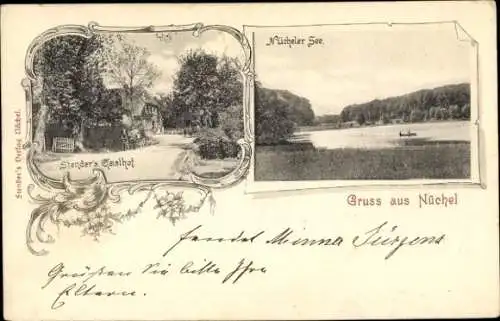 Nücheler See.
Stender's Gasthof.
Stender's Verlag Nüchel.
Gruss aus Nüchel
sendet Minna Jürgens
Grüßen Sie bitte Ihre
Eltern.